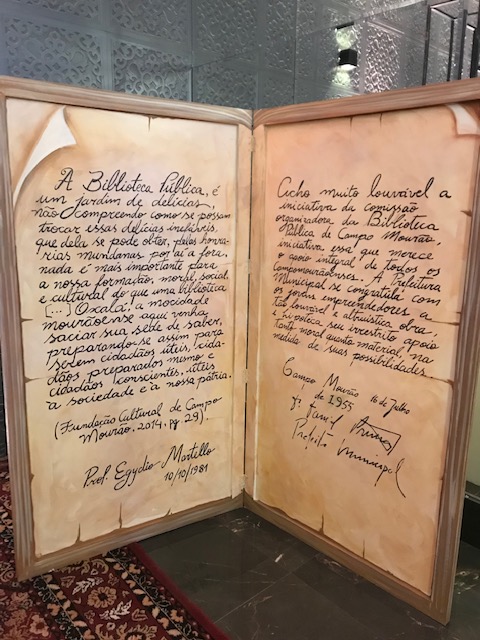 A Biblioteca Pública, é
um jardim de delícias,
não compreendo como se possam
trocar essas delícias inefáveis,
que dela se pode obter, pelas honra-
rias mundanas por aí a fora,
nada é mais importante para
a nossa formação, moral, social,
e cultural do que uma biblioteca
[...] Oxalá, a mocidade
mourãoense aqui venha
saciar sua sede de saber,
preparando-se assim para
serem cidadãos úteis, cida-
dãos preparados mesmo e
cidadãos conscientes, úteis
a sociedade e a nossa pátria.
(Fundação Cultural de Campo
Mourão, 2014, pg 29).
Prof. Egydio Martello
10/10/1981
Acho muito louvável a
iniciativa da comissão
organizadora da Biblioteca
Pública de Campo Mourão,
iniciativa essa que merece
o apoio integral de todos os
Campomourãoenses. A Prefeitura
Municipal se congratula com
os jovens empreendedores a
tão louvável e altruística obra
e hipoteca seu irrestrito apoio
tanto moral quanto material, na
medida de suas possibilidades.
Campo Mourão 16 de Julho
de 1955
Prefeito Municipal